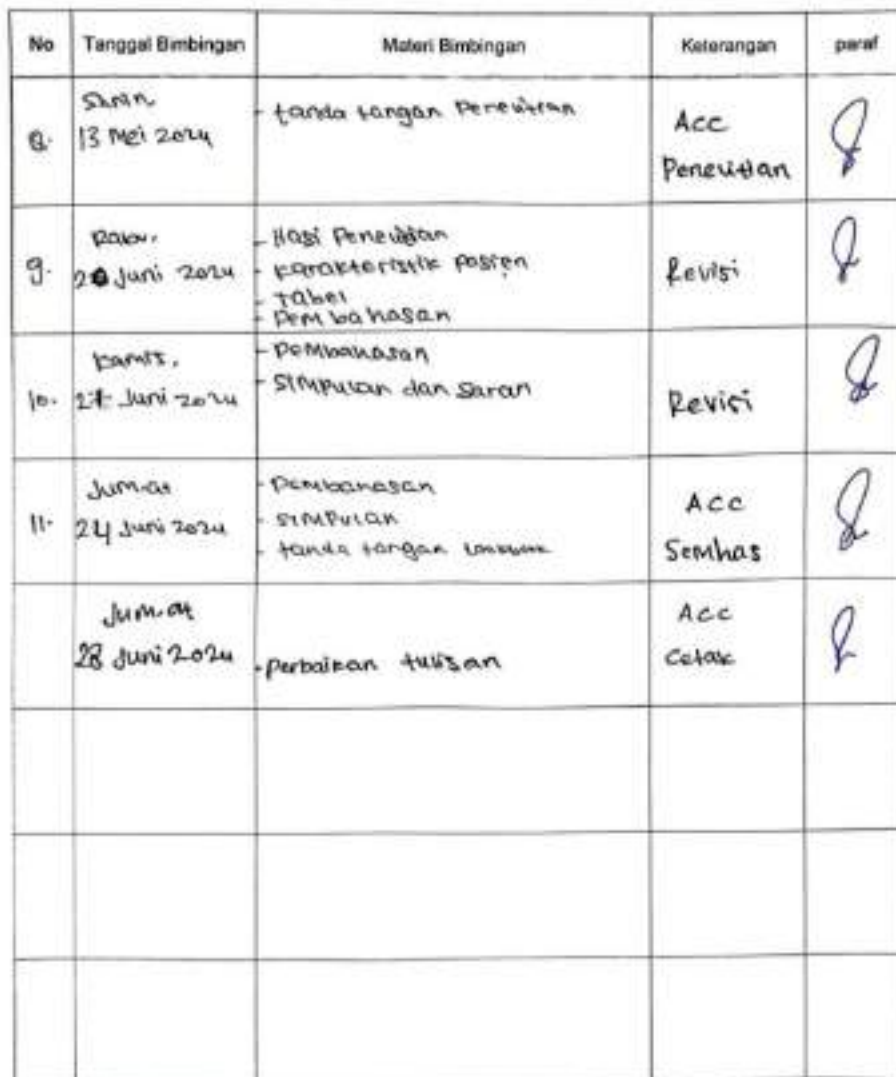 No Tanggal Bimbingan Materi Bimbingan Keterangan paraf
8. 13 Mei 2024
- tanda tangan Penelitian
Acc
Penelitian
9. Rabu,
Juni 2024
- Hasi Penelitian
- karakteristik pasien
- Tabel
- Pembahasan
Revisi
10. Kamis,
Juni 2024
- Pembahasan
- Simpulan dan Saran
Revisi
11. Jum-at
24 Juni 2024
- Pembahasan
- Simpulan
- tanda tangan
Acc
Semhas
Jum-at
28 Juni 2024
- Perbaikan tulisan
Acc
Cetak